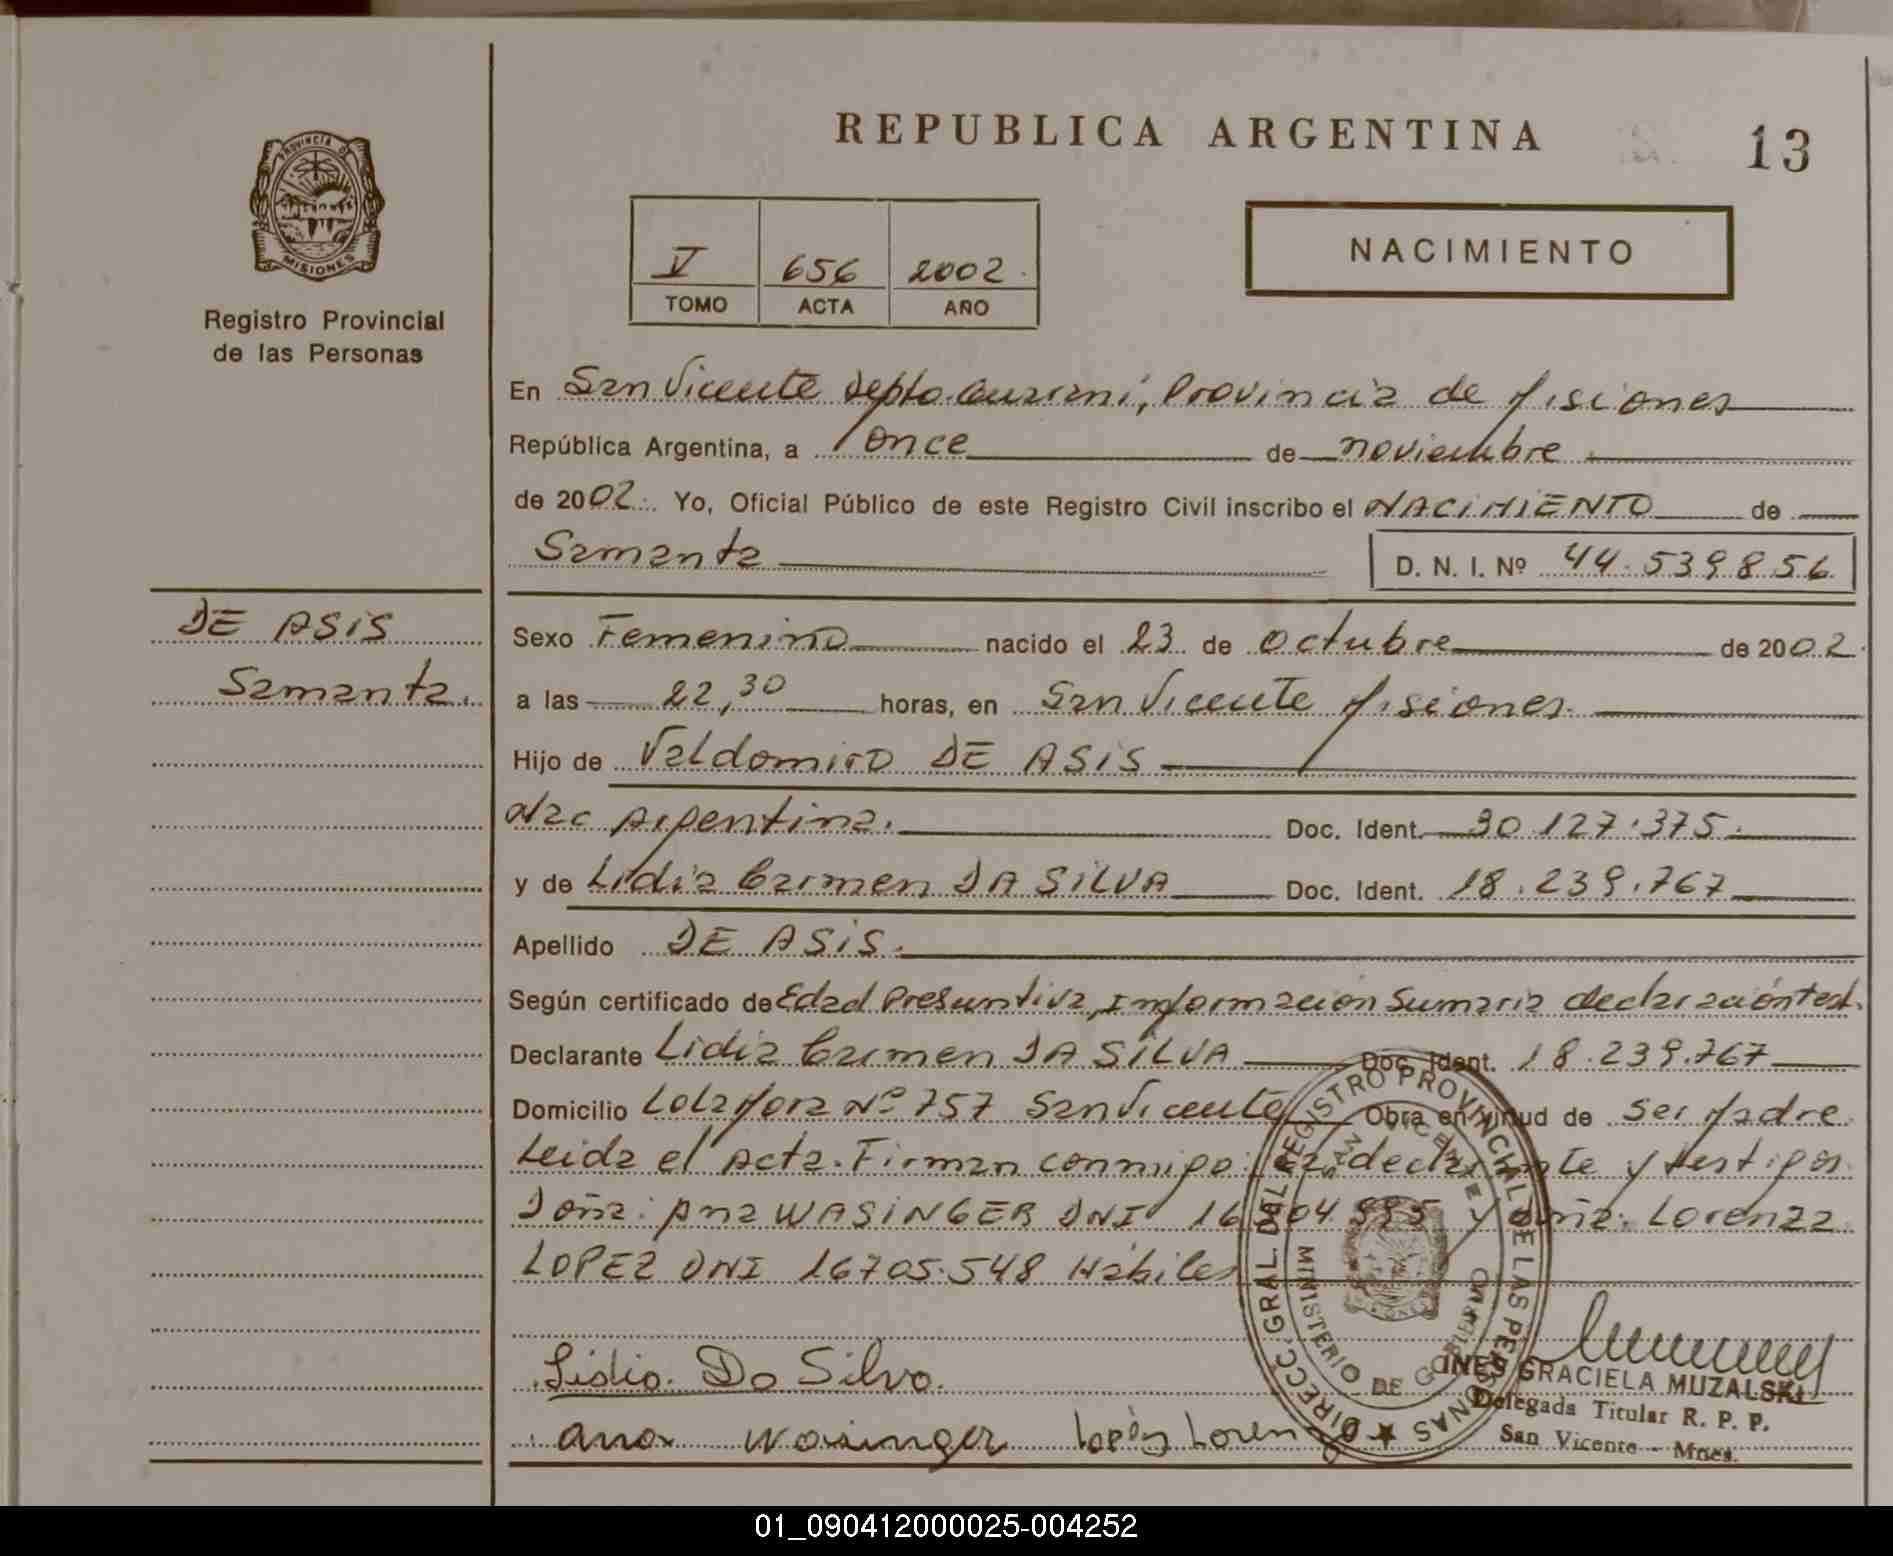 REPUBLICA ARGENTINA
13
PROVINCIA DE
MISIONES
Registro Provincial
de las Personas
V 656 2002
TOMO ACTA AÑO
NACIMIENTO
En San Vicente Depto. Guaraní, Provincia de Misiones
República Argentina, a once de noviembre
de 2002. Yo, Oficial Público de este Registro Civil inscribo el NACIMIENTO de
Samanta
D. N. I. Nº 44.539.856
DE ASIS
Samanta.
Sexo Femenino nacido el 23 de octubre de 2002.
a las 22,30 horas, en San Vicente Misiones.
Hijo de Valdomiro DE ASIS
Nac Argentina. Doc. Ident. 30.127.375.
y de Lidia Carmen DA SILVA Doc. Ident. 18.239.767
Apellido DE ASIS.
Según certificado de Edad Presuntiva, Información Sumaria declaración test.
Declarante Lidia Carmen DA SILVA Doc. Ident. 18.239.767
Domicilio Lola Mora Nº 757 San Vicente Obra en virtud de ser Madre.
Leida el Acta. Firman conmigo: la declarante y testigos.
Doña: Ana WASINGER DNI 16 04 y doña: Lorenza
LOPEZ DNI 16705.548 Hábiles
Lidia Da Silva.
Ana Wasinger Lopez Lorenza
DIRECC. GRAL. DEL REGISTRO PROVINCIAL DE LAS PERSONAS
SAN VICENTE
MINISTERIO DE GOBIERNO
INES GRACIELA MUZALSKI
Delegada Titular R. P. P.
San Vicente - Mnes.
01_090412000025-004252